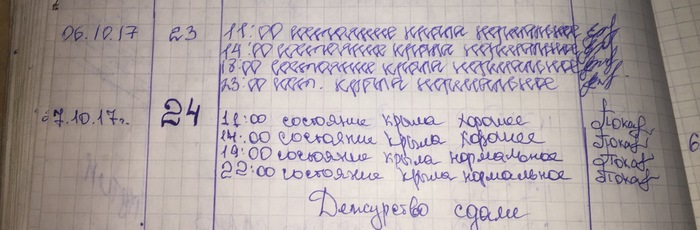 06.10.17 23 11:00 состояние крыла нормальное
14:00 состояние крыла нормальное
18:00 состояние крыла нормальное
23:00 сост. крыла нормальное
7.10.17г. 24 11:00 состояние крыла хорошее
14:00 состояние крыла хорошее
19:00 состояние крыла нормальное
22:00 состояние крыла нормальное
Дежурство сдали
6